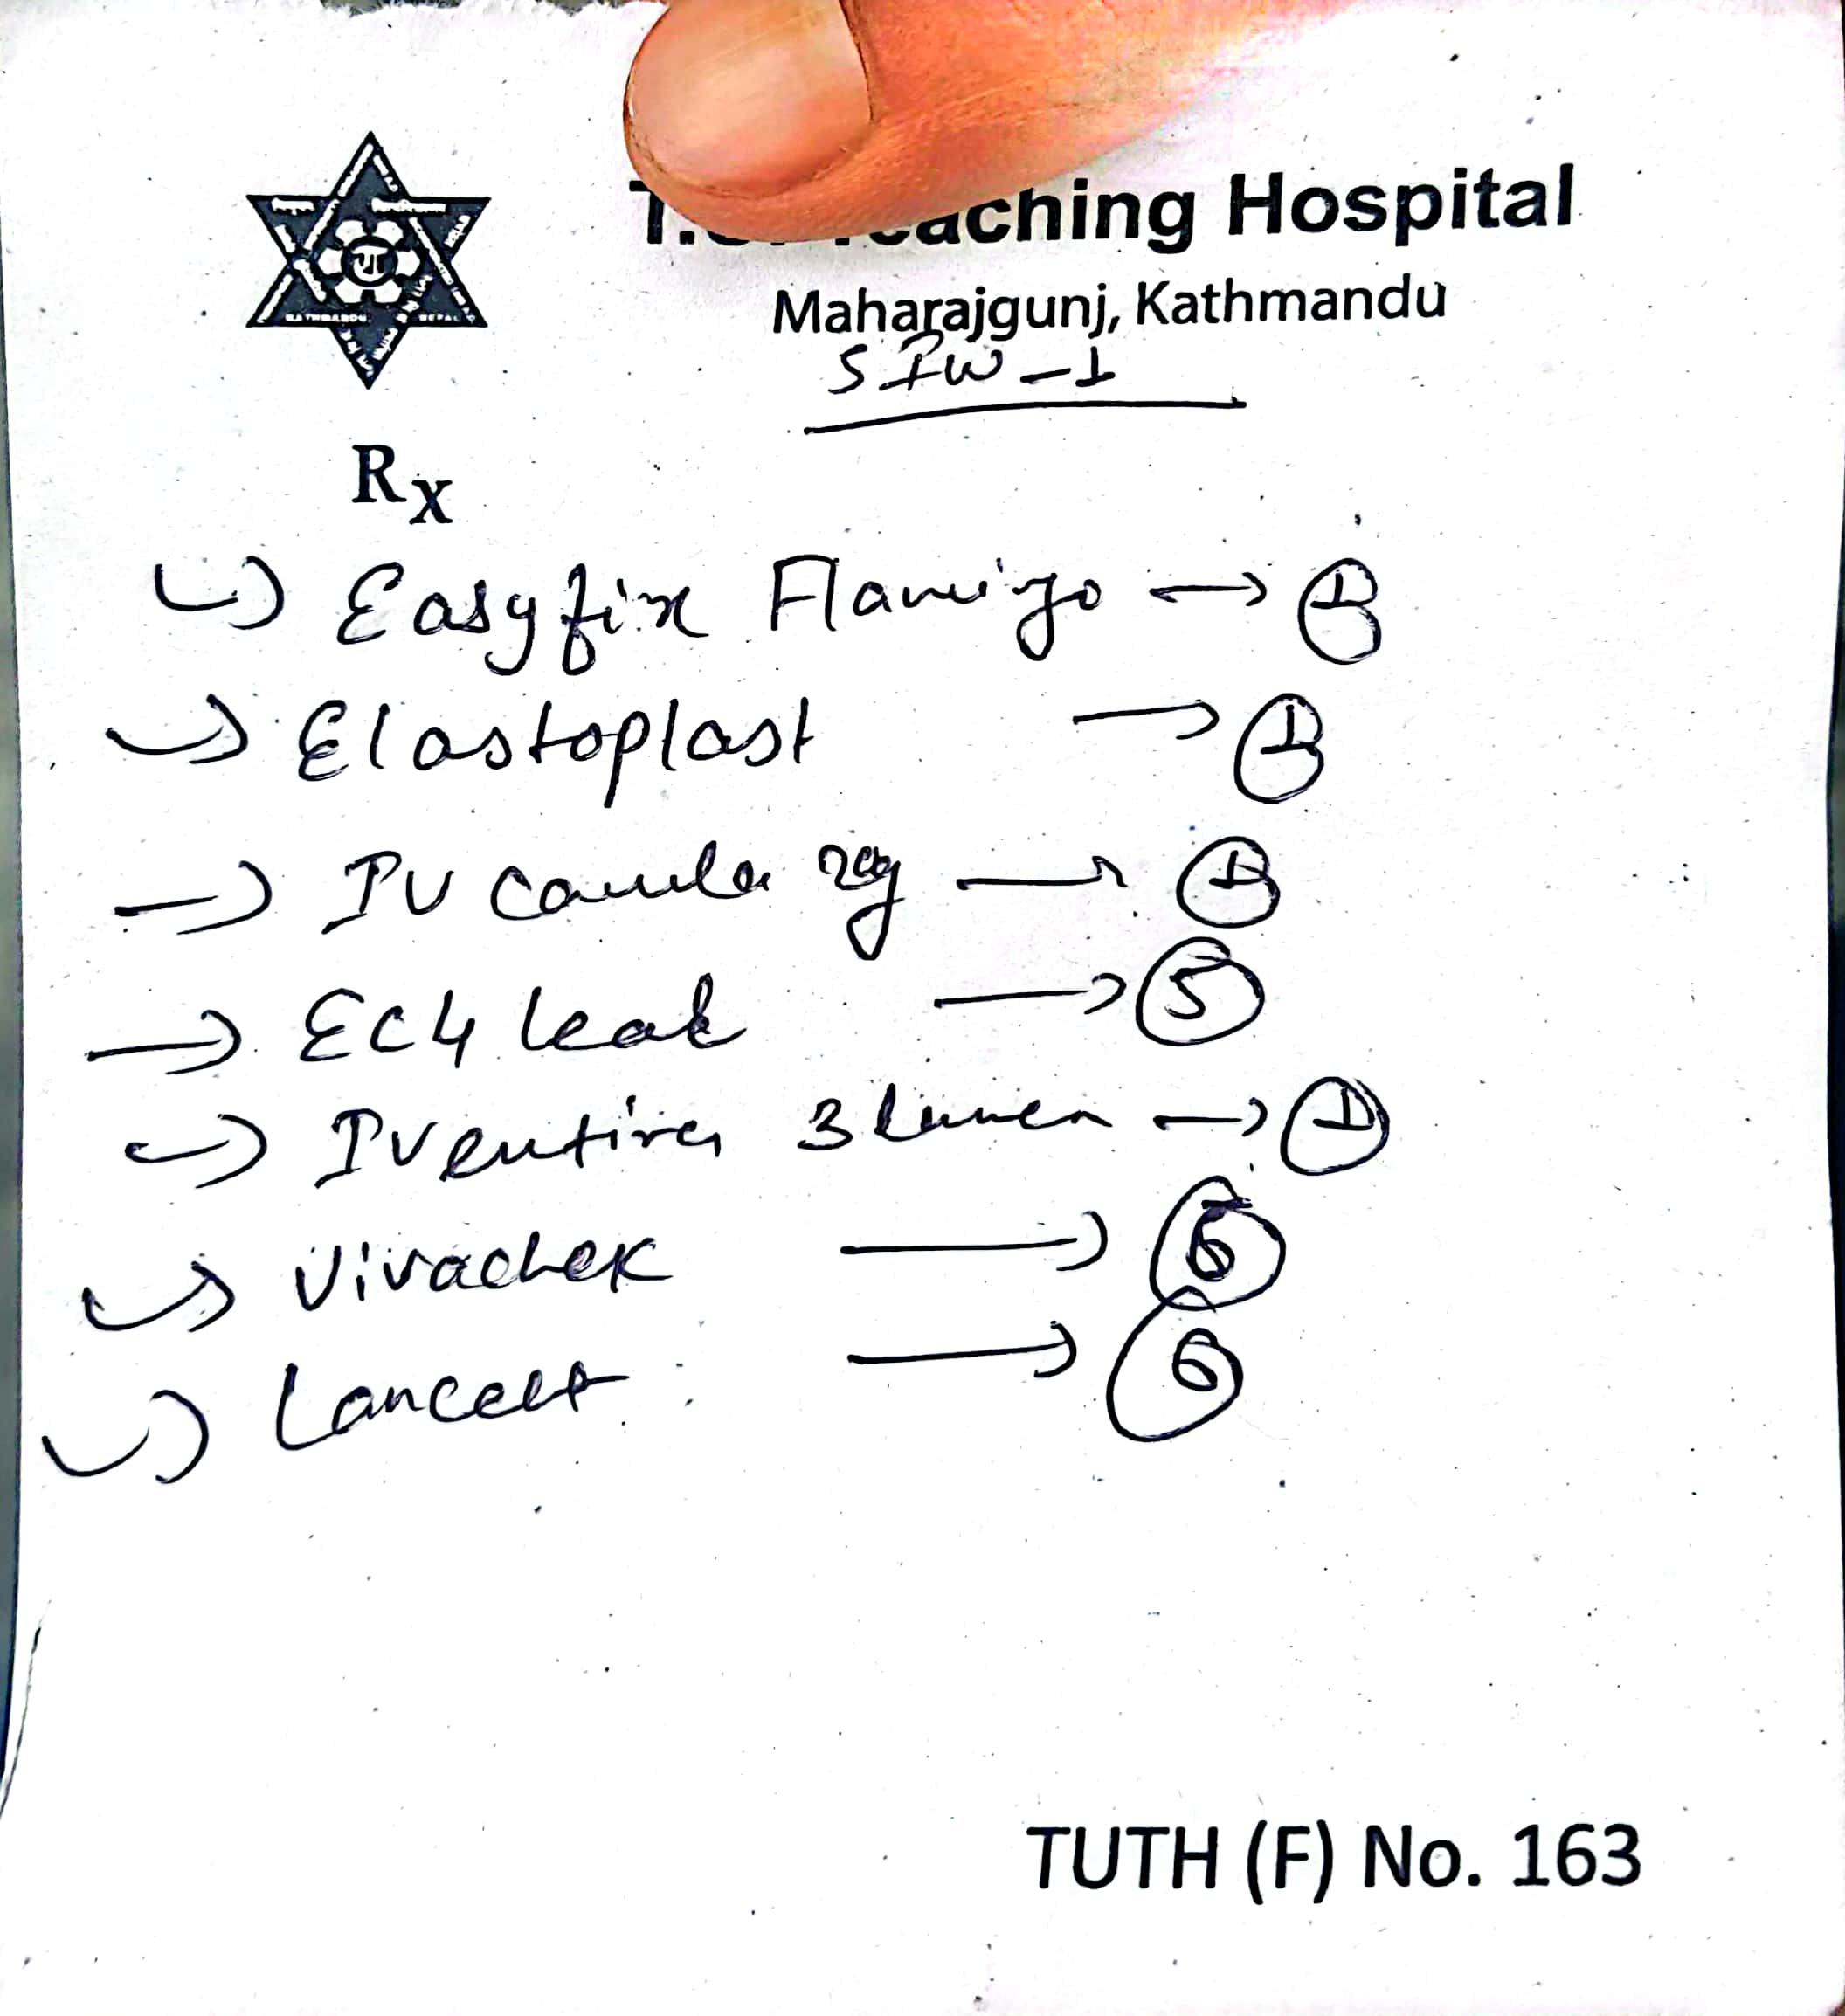 T.U. Teaching Hospital
Maharajgunj, Kathmandu
SIW-1
Rx
→ Easyfix Flamingo → 1
→ Elastoplast → 1
→ IV canula 20g → 1
→ ECG leak → 5
→ IV extire 3 lumen → 1
→ Vivachek → 6
→ Lancett → 6
TUTH (F) No. 163